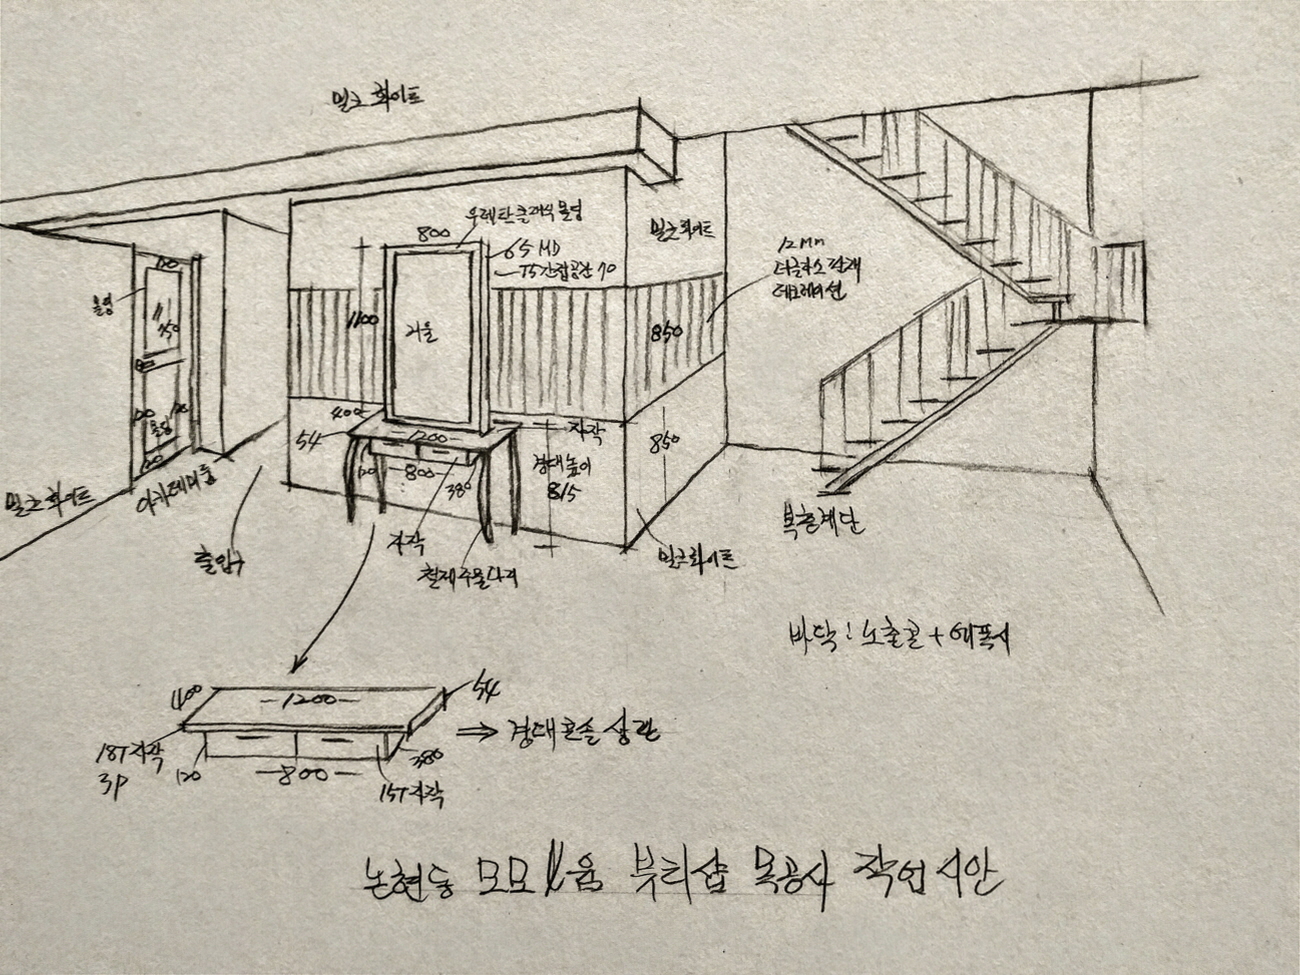 밀크화이트
우레탄클래식몰딩
800
65 MD
T5간접공간 70
밀크화이트
12mm
더글라스판재
데코레이션
120
몰딩
1100
거울
850
400
54
1200
자작
120
800
380
경대높이
815
850
120
몰딩
120
밀크화이트
아카데미룸
출입구
자작
철재주물다리
밀크화이트
복층계단
바닥 : 노출콘 + 에폭시
400
1200
54
⇒ 경대콘솔 상판
18T자작
3P
120
800
380
15T자작
논현동 모모 부티샵 목공사 작업시안